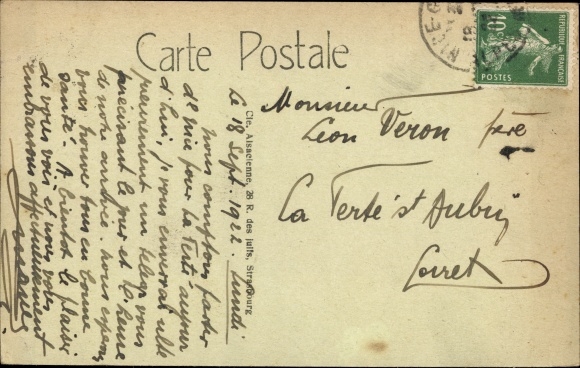 Carte Postale
RÉPUBLIQUE FRANÇAISE
10c
POSTES
Monsieur
Léon Veron père
La Ferté St Aubin
Loiret
Cie. Alsacienne, 28 R. des juifs, Strasbourg
Le 18 Sept. 1922 Lundi
nous comptons partir
de nice pour La Ferté aujour
d'hui, je vous enverrai
un telegr. vous
précisant le jour et l'heure
de notre arrivée. nous espérons
vous trouver tous en bonne
santé. A bientôt le plaisir
de vous voir et nous vous
embrassons affectueusement